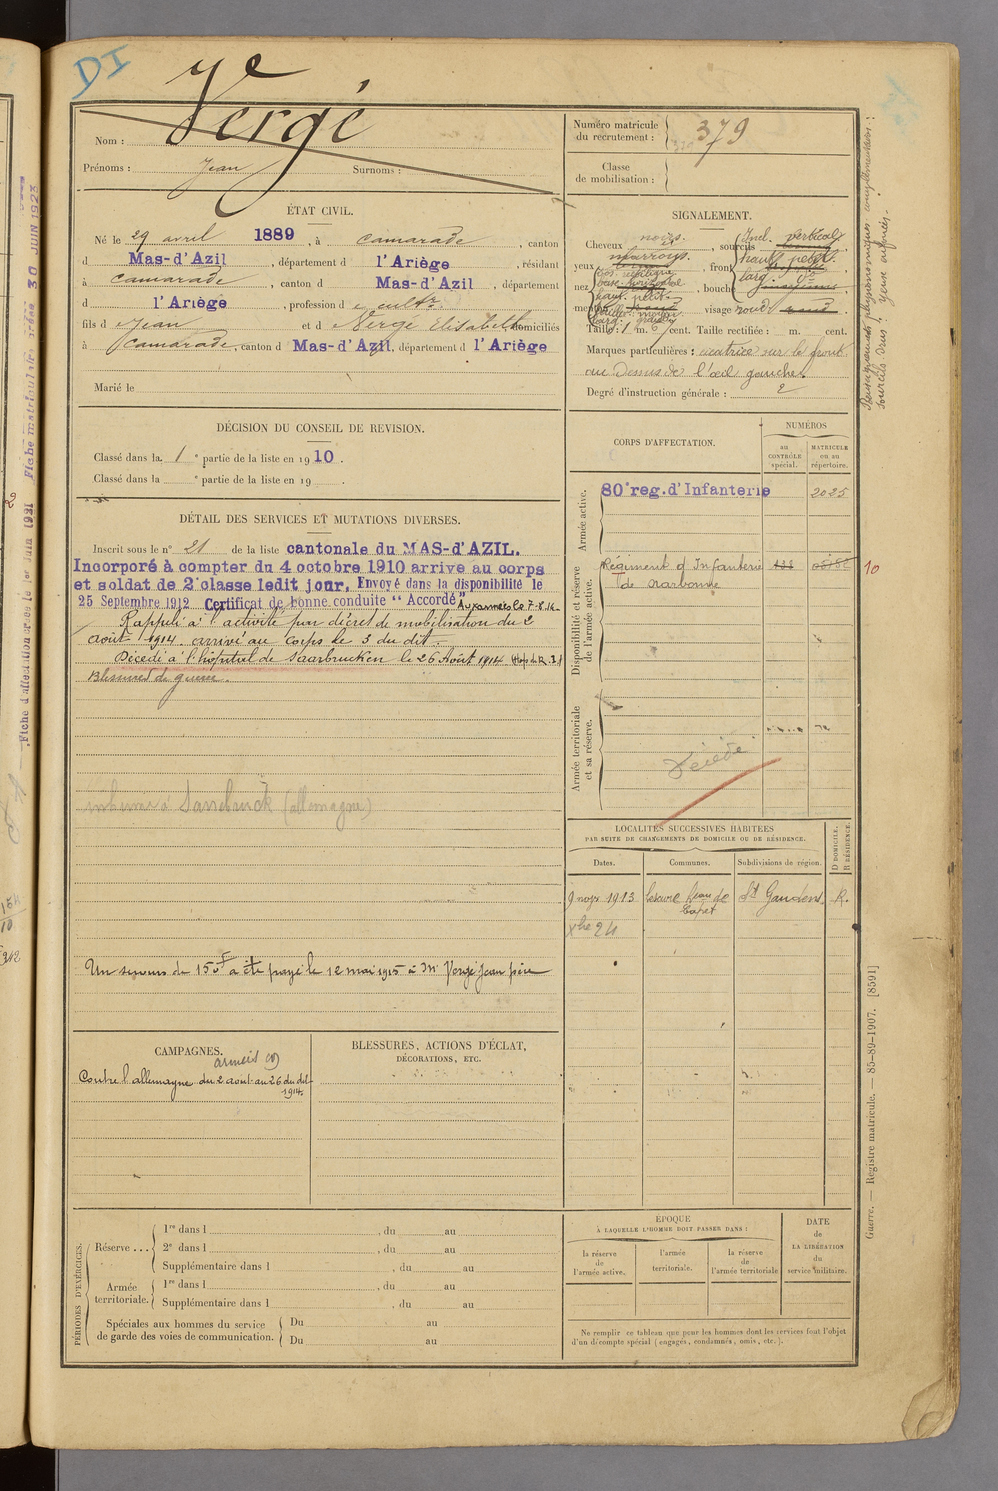 DI
Vergé
Nom :
Prénoms : Jean Surnoms :
Numéro matricule
du recrutement : 379
Classe
de mobilisation :
ÉTAT CIVIL.
Né le 29 avril 1889, à Camarade, canton
d Mas-d'Azil, département d l'Ariège, résidant
à Camarade, canton d Mas-d'Azil, département
d l'Ariège, profession de cultr.
fils d Jean et d Vergé Elisabeth domiciliés
à Camarade, canton d Mas-d'Azil, département d l'Ariège
Marié le
SIGNALEMENT.
Cheveux noirs. , sourcils
yeux marrons. , front Incl. vertical
nez , bouche
menton visage rond
Taille : 1 m. cent. Taille rectifiée : m. cent.
Marques particulières : cicatrice sur le front
au dessus de l'œil gauche.
Degré d'instruction générale : 2
DÉCISION DU CONSEIL DE REVISION.
Classé dans la 1e partie de la liste en 1910.
Classé dans la e partie de la liste en 19 .
DÉTAIL DES SERVICES ET MUTATIONS DIVERSES.
Inscrit sous le n° 21 de la liste cantonale du MAS-d'AZIL.
Incorporé à compter du 4 octobre 1910 arrive au corps
et soldat de 2e classe ledit jour. Envoyé dans la disponibilité le
25 Septembre 1912 Certificat de bonne conduite "Accordé" Aux armées le 7.8.14
Rappelé à l'activité par décret de mobilisation du 2
août 1914. arrivé au Corps le 3 du dit.
Décédé à l'hôpital de Saarbrucken le 26 Août 1914
Blessures de guerre.
inhumé à Sarrebruck (allemagne)
Un secours de 150f a été payé le 12 mai 1915 à Mr Vergé Jean père
CORPS D'AFFECTATION.
NUMÉROS
au
CONTRÔLE
spécial.
MATRICULE
ou au
répertoire.
Armée active.
80e reg. d'Infanterie 2025
Disponibilité et réserve
de l'armée active.
Régiment d'Infanterie
de Narbonne
10
Armée territoriale
et sa réserve.
Décédé
LOCALITÉS SUCCESSIVES HABITÉES
PAR SUITE DE CHANGEMENTS DE DOMICILE OU DE RÉSIDENCE.
Dates.
Communes.
Subdivisions de région.
D DOMICILE.
R RÉSIDENCE.
9 nov 1913 St Gaudens. R.
CAMPAGNES.
Contre l'allemagne du 2 août au 26 du dit
1914.
BLESSURES, ACTIONS D'ÉCLAT,
DÉCORATIONS, ETC.
PÉRIODES D'EXERCICES.
Réserve ...
1re dans l , du au
2e dans l , du au
Supplémentaire dans l , du au
Armée
territoriale.
1re dans l , du au
Supplémentaire dans l , du au
Spéciales aux hommes du service
de garde des voies de communication.
Du au
Du au
ÉPOQUE
À LAQUELLE L'HOMME DOIT PASSER DANS :
la réserve
de
l'armée active.
l'armée
territoriale.
la réserve
de
l'armée territoriale
DATE
de
LA LIBÉRATION
du
service militaire.
Ne remplir ce tableau que pour les hommes dont les services font l'objet
d'un décompte spécial (engagés, condamnés, omis, etc.).
Guerre. — Registre matricule. — 85-89-1907. [8591]
Renseignements physionomiques complémentaires :